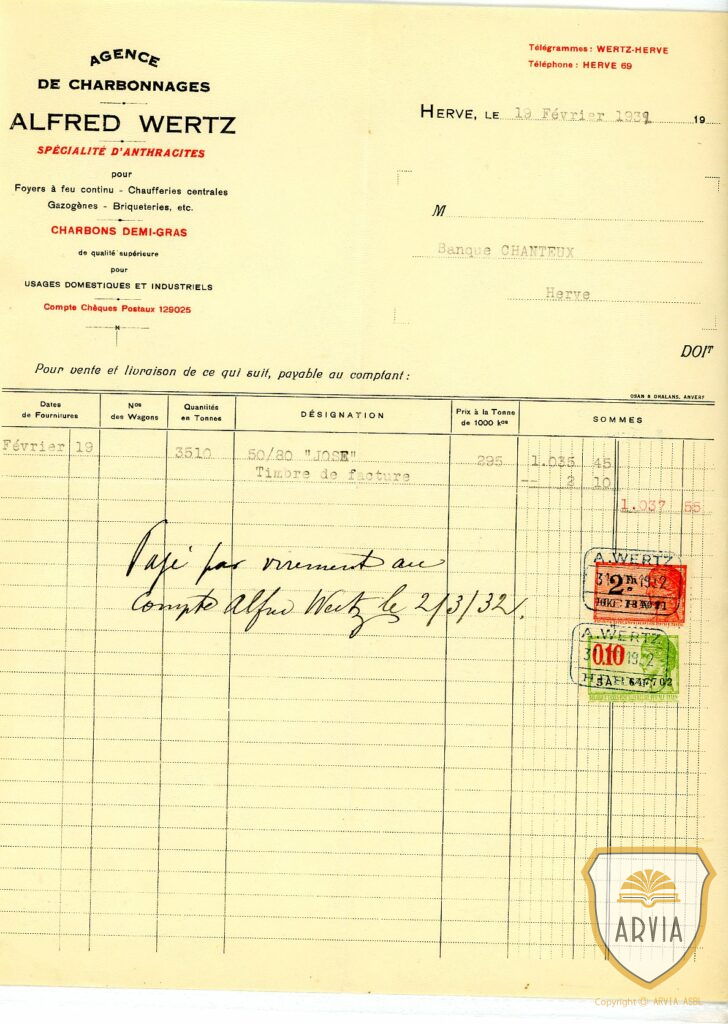 AGENCE
DE CHARBONNAGES
ALFRED WERTZ
SPÉCIALITÉ D'ANTHRACITES
pour
Foyers à feu continu - Chaufferies centrales
Gazogènes - Briqueteries, etc.
CHARBONS DEMI-GRAS
de qualité supérieure
pour
USAGES DOMESTIQUES ET INDUSTRIELS
Compte Chèques Postaux 129025
Télégrammes : WERTZ-HERVE
Téléphone : HERVE 69
HERVE, LE 19 Février 1932 19
M
Banque CHANTEUX
Herve
DOIT
Pour vente et livraison de ce qui suit, payable au comptant :
Dates de Fournitures Nos des Wagons Quantités en Tonnes DÉSIGNATION Prix à la Tonne de 1000 kos SOMMES
Février 19 3510 50/80 "JOSE" 295 1.035 45
Timbre de facture -- 2 10
1.037 55
Payé par virement au
compte Alfred Wertz le 2/3/32
A. WERTZ
2 Fr
A. WERTZ
0.10
ARVIA
Copyright © ARVIA ASBL